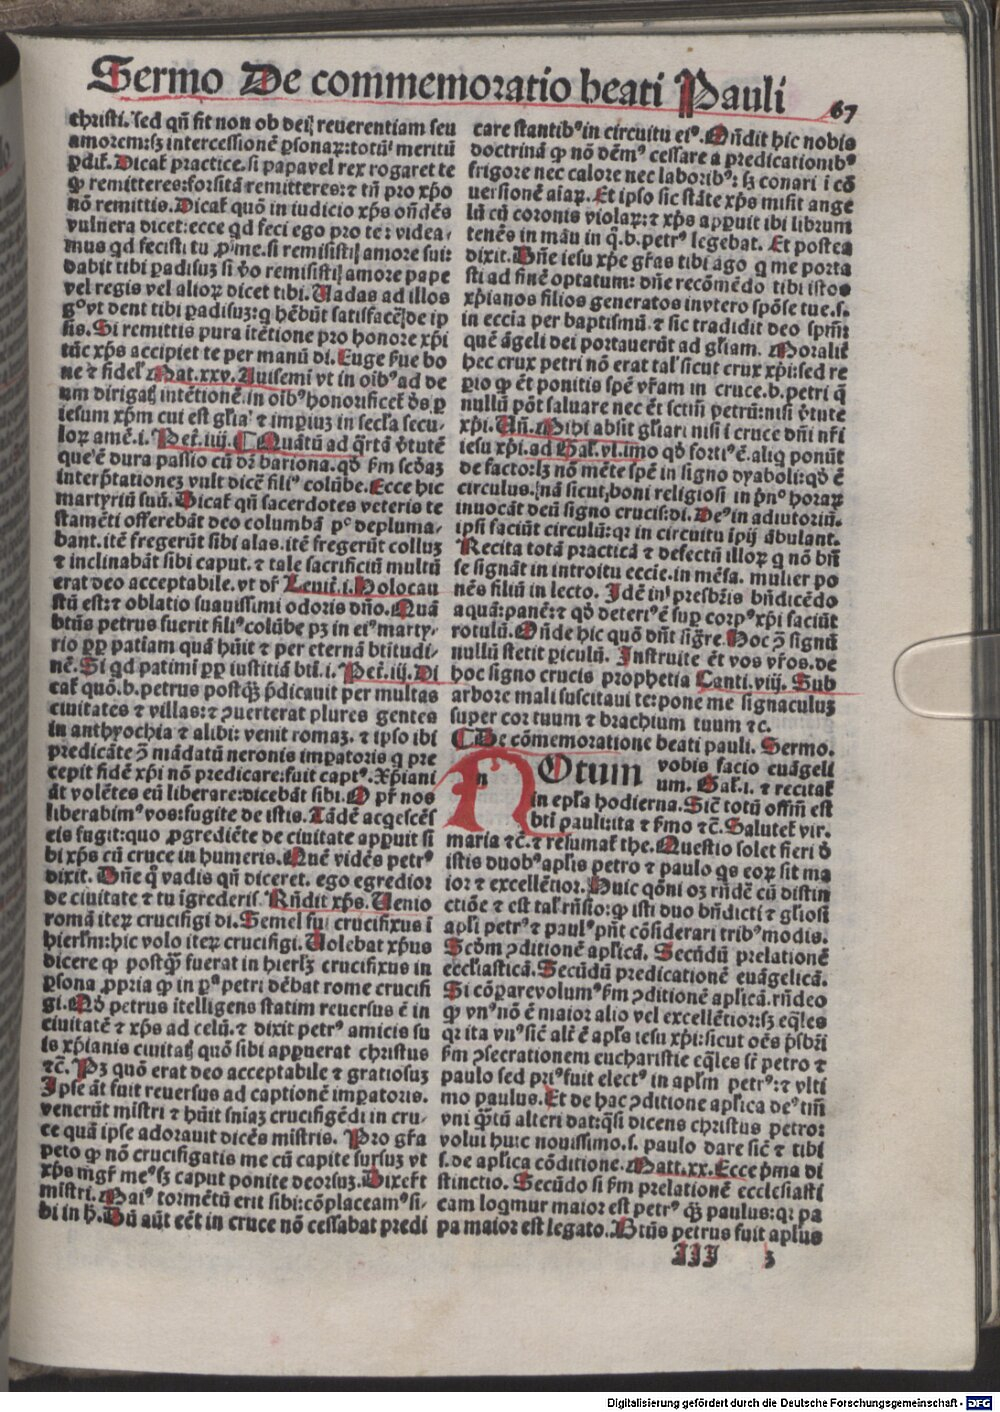 Sermo De commemoratio beati Pauli
67
christi. sed qñ fit non ob dei reuerentiam seu
amorem: sꝫ intercessionē ꝑsonaꝝ: totū meritū
ꝑdit̃. Dicat̃ practice. si papa vel rex rogaret te
ꝙ remitteres: forsitā remitteres: ⁊ tñ pro xp̄o
nō remittis. Dicat̃ quō in iudicio xp̄s oñdēs
vulnera dicet: ecce qd feci ego pro te: videa-
mus qd fecisti tu ꝓ me. si remisisti amore sui:
dabit tibi ꝑadisuꝫ si v̄o remisisti amore pape
vel regis vel alioꝝ dicet tibi. Uadas ad illos
gͦ vt dent tibi ꝑadisuꝫ: q hēbūt satisfacē de ip
sis. Si remittis pura itētione pro honore xp̄i
tūc xp̄s accipiet te per manū di. Euge ẜue bo
ne ⁊ fidel̃ Mat. xxv. Auisemi vt in oibꝰ ad de
um dirigat̃ intētionē. in oibꝰ honorificet̃ d̄s ꝑ
iesum xp̄m cui est gl̃ia ⁊ imperiuꝫ in secl̃a secu-
loꝝ amē. i. Pet̃. iiij. ¶ Quātū ad q̄rtā v̄tutē
que ē dura passio cū dr̄ bariona. qd̄ ẜm scd̄aꝫ
interp̄tationeꝫ vult dicē filiꝰ colūbe. Ecce hic
martyriū suū. Dicat̃ qñ sacerdotes veteris te
stamēti offerebāt deo columbā pͦ depluma-
bant. itē fregerūt sibi alas. itē fregerūt colluꝫ
⁊ inclinabāt sibi caput. ⁊ tale sacrificiū multū
erat deo acceptabile. vt dr̄ Leuit̃. i. Holocau
stū est: ⁊ oblatio suauissimi odoris dn̄o. Quā
btūs petrus fuerit filiꝰ colūbe pꝫ in eiꝰ marty-
rio ꝓp patiam quā hūit ⁊ per eternā btitudi-
nē. Si qd patimi ꝓp iustitiā bti. i. Pet̃. iij. Di
cat̃ quō. b. petrus postꝙ p̄dicauit per multas
ciuitates ⁊ villas: ⁊ ꝯuerterat plures gentes
in anthyochia ⁊ alibi: venit romaꝫ. ⁊ ipso ibi
predicāte ꝯ mādatū neronis impatoris q pre
cepit fidē xp̄i nō predicare: fuit captꝰ. Xp̄iani
āt volētes eū liberare: dicebāt sibi. O pr̄ nos
liberabimꝰ vos: fugite de istis. Tādē acqescēs
eis fugit: quo ꝓgrediēte de ciuitate apꝑuit si
bi xp̄s cū cruce in humeris. Quē vidēs petrꝰ
dixit. Dn̄e q̄ vadis qñ diceret. ego egredior
de ciuitate ⁊ tu īgrederis. Rn̄dit xp̄s. Uenio
romā iteꝝ crucifigi di. Semel fui crucifixus ī
hierl̃m: hic volo iteꝝ crucifigi. Uolebat xp̄us
dicere ꝙ postꝙ̄ fuerat in hierl̃ꝫ crucifixus in
ꝑsona ꝓpria ꝙ in ꝑꝰ petri dēbat rome crucifi
gi. Qd̄ petrus itelligens statim reuersus ē in
ciuitatē ⁊ xp̄s ad celū. ⁊ dixit petrꝰ amicis su
is xp̄ianis ciuitat̃ quō sibi apꝑuerat christus
⁊c̄. Pꝫ quō erat deo acceptabile ⁊ gratiosuꝫ
Ipse āt fuit reuersus ad captionē impatoris.
venerūt mistri ⁊ hūit sniaꝫ crucifigēdi in cru-
ce quā ipse adorauit dicēs mistris. Pro gr̄a
peto ꝙ nō crucifigatis me cū capite sursuꝫ vt
xp̄s mgr̄ meꝰ sꝫ caput ponite deorsuꝫ. Dixer̄t
mistri. Maiꝰ tormētū erit sibi: cōplaceamꝰ si-
bi in h̄. Dū aūt eēt in cruce nō cessabat predi
care stantibꝰ in circuitu eiꝰ. Oñdit hic nobis
doctrinā ꝙ nō dēmꝰ cessare a predicationibꝰ
frigore nec calore nec laboribꝰ: sꝫ conari ī cō
uersionē aiaꝝ. Et ipso sic stāte xp̄s misit ange
lū cū coronis violaꝝ: ⁊ xp̄s apꝑuit ibi librum
tenēs in māu in q̄. b. petrꝰ legebat. Et postea
dixit. Dn̄e iesu xp̄e gr̄as tibi ago q me porta
sti ad finē optatum: dn̄e recōmēdo tibi istos
xp̄ianos filios generatos invtero spōse tue. s.
in eccia per baptismū. ⁊ sic tradidit deo spm̄:
quē āgeli dei portauerūt ad gl̃iam. Moralit̃
hec crux petri nō erat tal̃ sicut crux xp̄i: sed re
ꝑio ꝙ ēt ponitis spē vr̄am in cruce. b. petri q̄
nullū pōt saluare nec ēt sctm̄ petrū: nisi v̄tute
xp̄i. Un̄. Mihi absit gl̃iari nisi ī cruce dn̄i nr̄i
iesu xp̄i. ad Gal̃. vl. imo qd̄ fortiꝰ ē. aliq ponūt
de facto: lꝫ nō mēte spē in signo dyaboli: qd̄ ē
circulus. nā sicut boni religiosi in p̄nͦ horaꝝ
inuocāt deū signo crucis: di. Deꝰ in adiutoriū.
ipsi faciūt circulū: qr in circuitu īpij ābulant.
Recita totā practicā ⁊ defectū illoꝝ q nō bn̄
se signāt in introitu eccie. in mēsa. mulier po
nēs filiū in lecto. Idē inꝰ presbr̄is bn̄dicēdo
aquā: panē: ⁊ qd̄ deteriꝰ ē suꝑ corpꝰ xp̄i faciūt
rotulū. Oñde hic quō dn̄t sig̅re. Hoc ꝯ signū
nullū stetit ꝑiculū. Instruite ēt vos vr̄os. de
hoc signo crucis prophetia Canti. viij. Sub
arbore mali suscitaui te: pone me signaculuꝫ
super cor tuum ⁊ brachium tuum ⁊c.
¶ De cōmemoratione beati pauli. Sermo.
NOtum vobis facio euāgeli
um. Gal̃. i. ⁊ recitat̃
in epl̃a hodierna. Sic̄ totū offm̄ est
bti pauli: ita ⁊ ẜmo ⁊c̄. Salutet̃ vir.
maria ⁊c̄. ⁊ resumat̃ the. Questio solet fieri d̄
istis duobꝰ apl̃is petro ⁊ paulo qs eoꝝ sit ma
ior ⁊ excellētior. Huic qōni oꝫ rn̄dē cū distin
ctiōe ⁊ est tal̃ rn̄sio: ꝙ isti duo bn̄dicti ⁊ gl̃iosi
apl̃i petrꝰ ⁊ paulꝰ pn̄t cōsiderari tribꝰ modis.
Scd̄m ꝯditionē apl̃icā. Secūdū prelationē
eccl̃iasticā. Secūdū predicationē euāgelicā.
Si cōparevolumꝰ ẜm ꝯditionē apl̃icā. rn̄deo
ꝙ vnꝰ nō ē maior alio vel excellētior: sꝫ eq̄les
qr ita vnꝰ sic̄ alt̄ ē apl̃s iesu xp̄i: sicut oēs p̄sbr̄i
ẜm ꝯsecrationem eucharistie eq̄les st̄ petro ⁊
paulo sed priꝰ fuit electꝰ in apl̃m petrꝰ: ⁊ vlti
mo paulus. Et de hac ꝯditione apl̃ica deꝰ tm̄
vni q̄tū alteri dat: q̄si dicens christus petro:
volui huic nouissimo. s. paulo dare sic̄ ⁊ tibi
s. de apl̃ica cōditione. Matt. xx. Ecce p̄ma di
stinctio. Secūdo si ẜm prelationē ecclesiasti
cam loqmur maior est petrꝰ ꝙ̄ paulus: qr pa
pa maior est legato. Btūs petrus fuit apl̃us
III 3
Digitalisierung gefördert durch die Deutsche Forschungsgemeinschaft - DFG